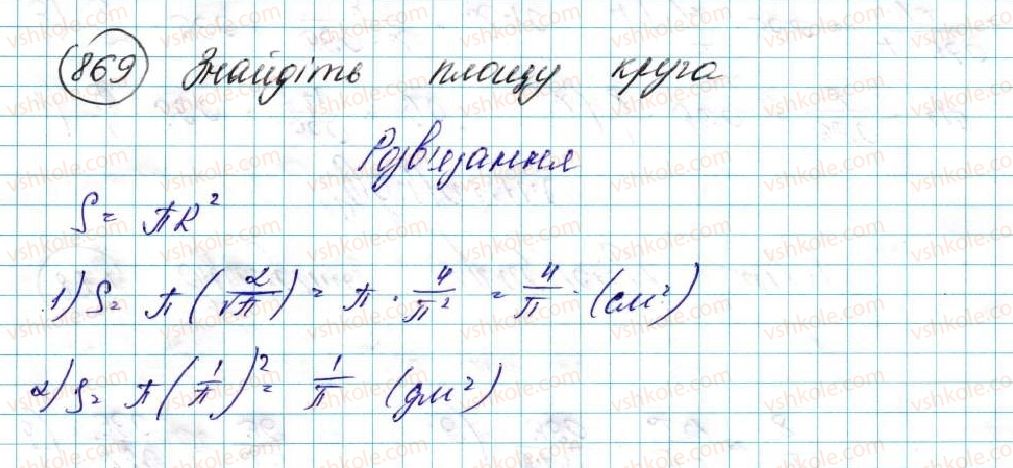 869 Знайдіть площу круга
Розв'язання
S = πR²
1) S = π (2/√π) = π · 4/π² = 4/π · (см²)
2) S = π (1/π)² = 1/π (дм²)